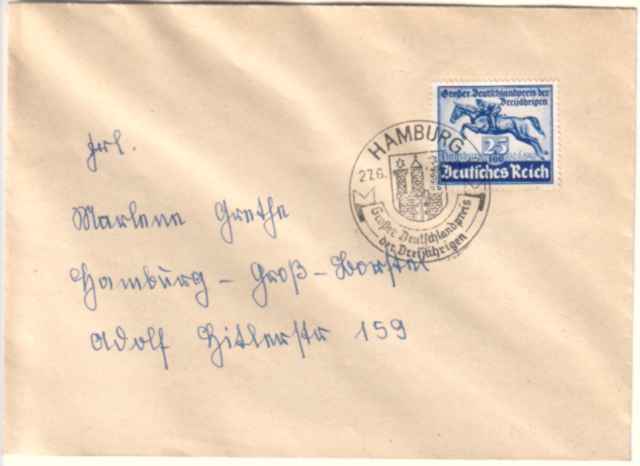 Großer Deutschlandpreis der
Dreijährigen
25
100
Deutsches Reich
HAMBURG
27.6.
Großer Deutschlandpreis
der Dreijährigen
Frl.
Marlene Grethe
Hamburg - Groß - Borstel
Adolf Hitlerstr 159